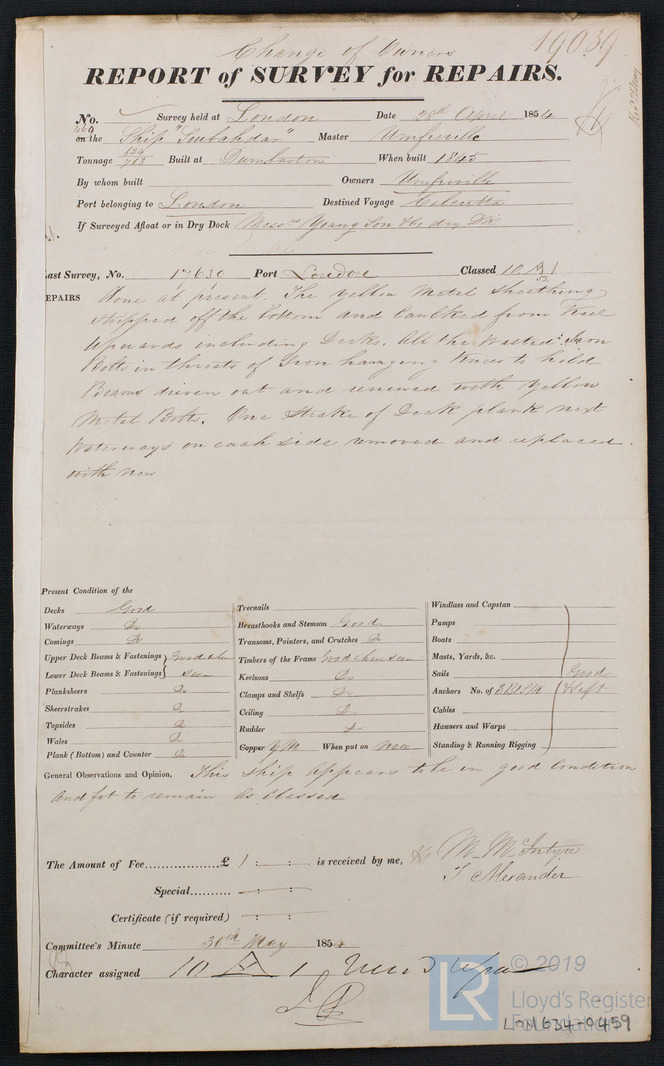 Change of Owners 19039
REPORT of SURVEY for REPAIRS.
No. Survey held at London Date 28th April 1854
on the Ship "Soubahdar" Master Umfreville
Tonnage 703 Built at Dumbarton When built 1845
By whom built Owners Umfreville
Port belonging to London Destined Voyage Calcutta
If Surveyed Afloat or in Dry Dock Messrs Young Son & Co dry Dk
Last Survey, No. 17630 Port London Classed 10 A 1
REPAIRS Done at present. The Yellow Metal Sheathing
stripped off the bottom and Caulked from Keel
upwards including Decks. All the wasted Iron
Bolts in throats of Iron hanging Knees to hold
Beams driven out and renewed with Yellow
Metal Bolts. One Strake of Deck plank next
Waterways on each side removed and replaced
with new
Present Condition of the
Decks Good
Waterways Do
Comings Do
Upper Deck Beams & Fastenings Good when
Lower Deck Beams & Fastenings seen
Planksheers Do
Sheerstrakes Do
Topsides Do
Wales Do
Plank (Bottom) and Counter Do
Treenails
Breasthooks and Stemson Good
Transoms, Pointers, and Crutches Do
Timbers of the Frame Good when seen
Keelsons Do
Clamps and Shelfs Do
Ceiling Do
Rudder
Copper YM When put on New
Windlass and Capstan
Pumps
Boats
Masts, Yards, &c.
Sails Good
Anchors No. of
Cables
Hausers and Warps
Standing & Running Rigging
General Observations and Opinion, This Ship appears to be in good Condition
and fit to remain as Classed
The Amount of Fee.................£ 1 : : is received by me, M. McIntyre
T Alexander
Special.......... : :
Certificate (if required) : :
Committee's Minute 30th May 1854
Character assigned 10 A 1
© 2019
LR Lloyd's Register
Foundation
LON634-0459